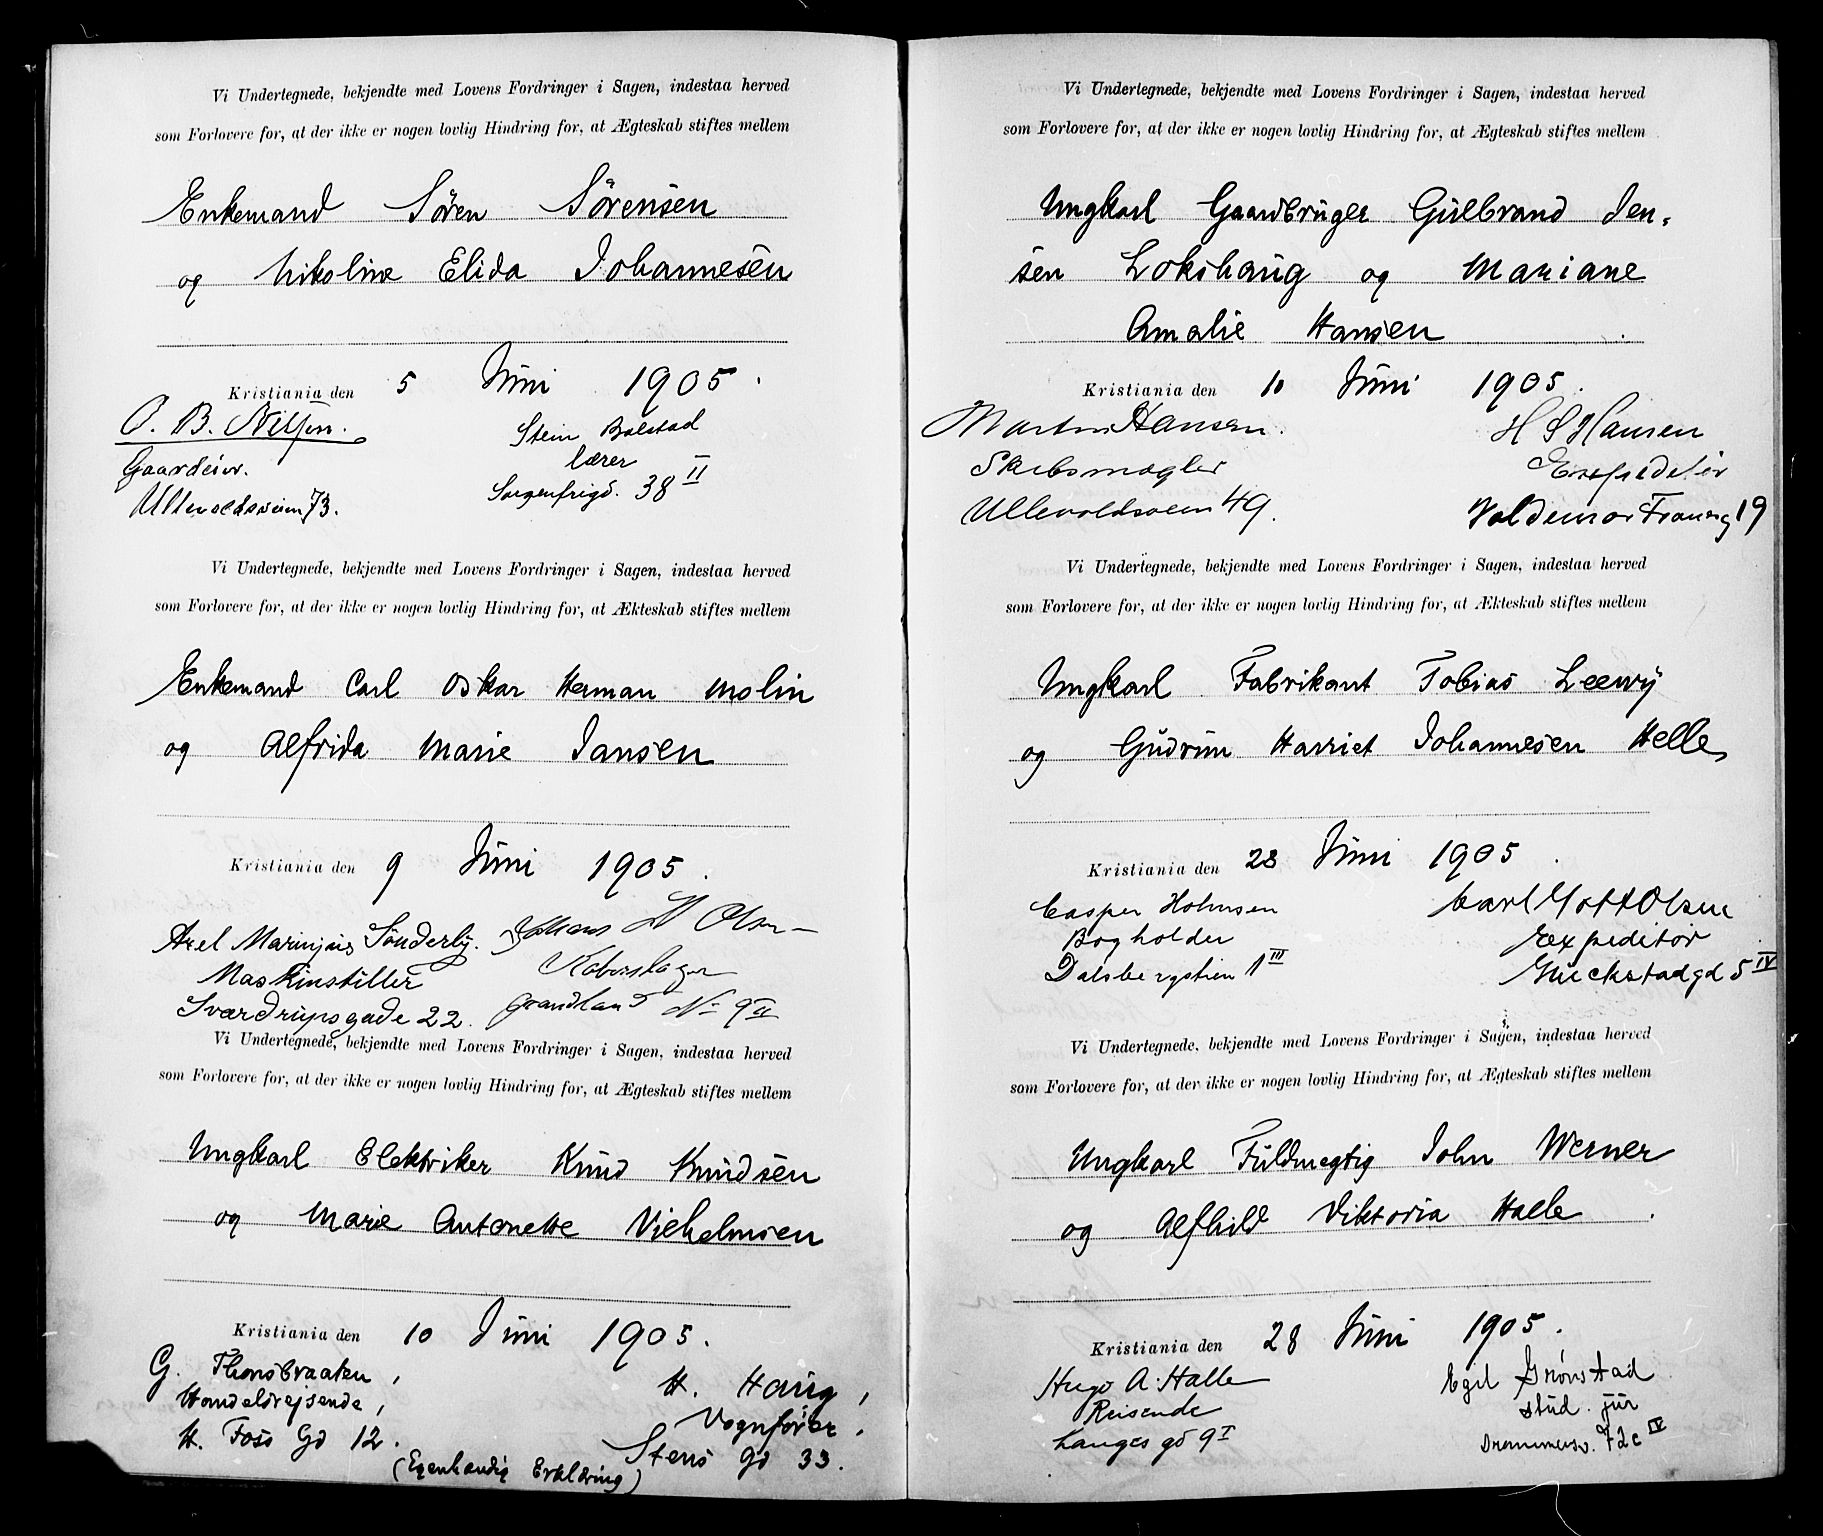 Vi Undertegnede, bekjendte med Lovens Fordringer i Sagen, indestaa herved
som Forlovere for, at der ikke er nogen lovlig Hindring for, at Ægteskab stiftes mellem
Enkemand Søren Sørensen
og Nikoline Elida Johannesen
Kristiania den 5 Juni 1905.
O. B. Nilsen.
Gaardeier.
Ullevoldsveien 73.
Stein Bolstad
lærer
Sorgenfrigd. 38 II
Vi Undertegnede, bekjendte med Lovens Fordringer i Sagen, indestaa herved
som Forlovere for, at der ikke er nogen lovlig Hindring for, at Ækteskab stiftes mellem
Enkemand Carl Oskar Herman Molin
og Alfrida Marie Jansen
Kristiania den 9 Juni 1905.
Axel Marinius Sønderby.
Maskinstiller
Sværdrupsgade 22.
Johans H Olsen
Grandland No 9 II
Vi Undertegnede, bekjendte med Lovens Fordringer i Sagen, indestaa herved
som Forlovere for, at der ikke er nogen lovlig Hindring for, at Ægteskab stiftes mellem
Ungkarl Elektriker Knud Knudsen
og Marie Antonette Vilhelmsen
Kristiania den 10 Juni 1905.
G. Thonsbraaten,
Handelsrejsende,
H. Foss Gd 12.
H. Haug,
Vognfører,
Stens Gd 33.
(Egenhændig Erklæring)
Vi Undertegnede, bekjendte med Lovens Fordringer i Sagen, indestaa herved
som Forlovere for, at der ikke er nogen lovlig Hindring for, at Ægteskab stiftes mellem
Ungkarl Gaardbruger Gulbrand Jen-
sen Lokshaug og Mariane
Amalie Hansen
Kristiania den 10 Juni 1905.
Martin Hansen.
Skibsmægler
Ullevoldsveien 49.
H S Hansen
Expeditør
Valdemar Thranesg 19
Vi Undertegnede, bekjendte med Lovens Fordringer i Sagen, indestaa herved
som Forlovere for, at der ikke er nogen lovlig Hindring for, at Ækteskab stiftes mellem
Ungkarl Fabrikant Tobias Leewy
og Gudrun Harriet Johannesen Helle
Kristiania den 28 Juni 1905.
Casper Holmsen
Bogholder
Dalsbergstien 1 III
Carl Gott Olsen
Expeditør
Glückstadgd 5 IV
Vi Undertegnede, bekjendte med Lovens Fordringer i Sagen, indestaa herved
som Forlovere for, at der ikke er nogen lovlig Hindring for, at Ægteskab stiftes mellem
Ungkarl Fuldmegtig John Werner
og Alfhild Viktoria Halle.
Kristiania den 28 Juni 1905.
Hugo A. Halle
Reisende
Langes gd 9 I
Egil Grønstad
stud. jur
Drammensv. 72c IV